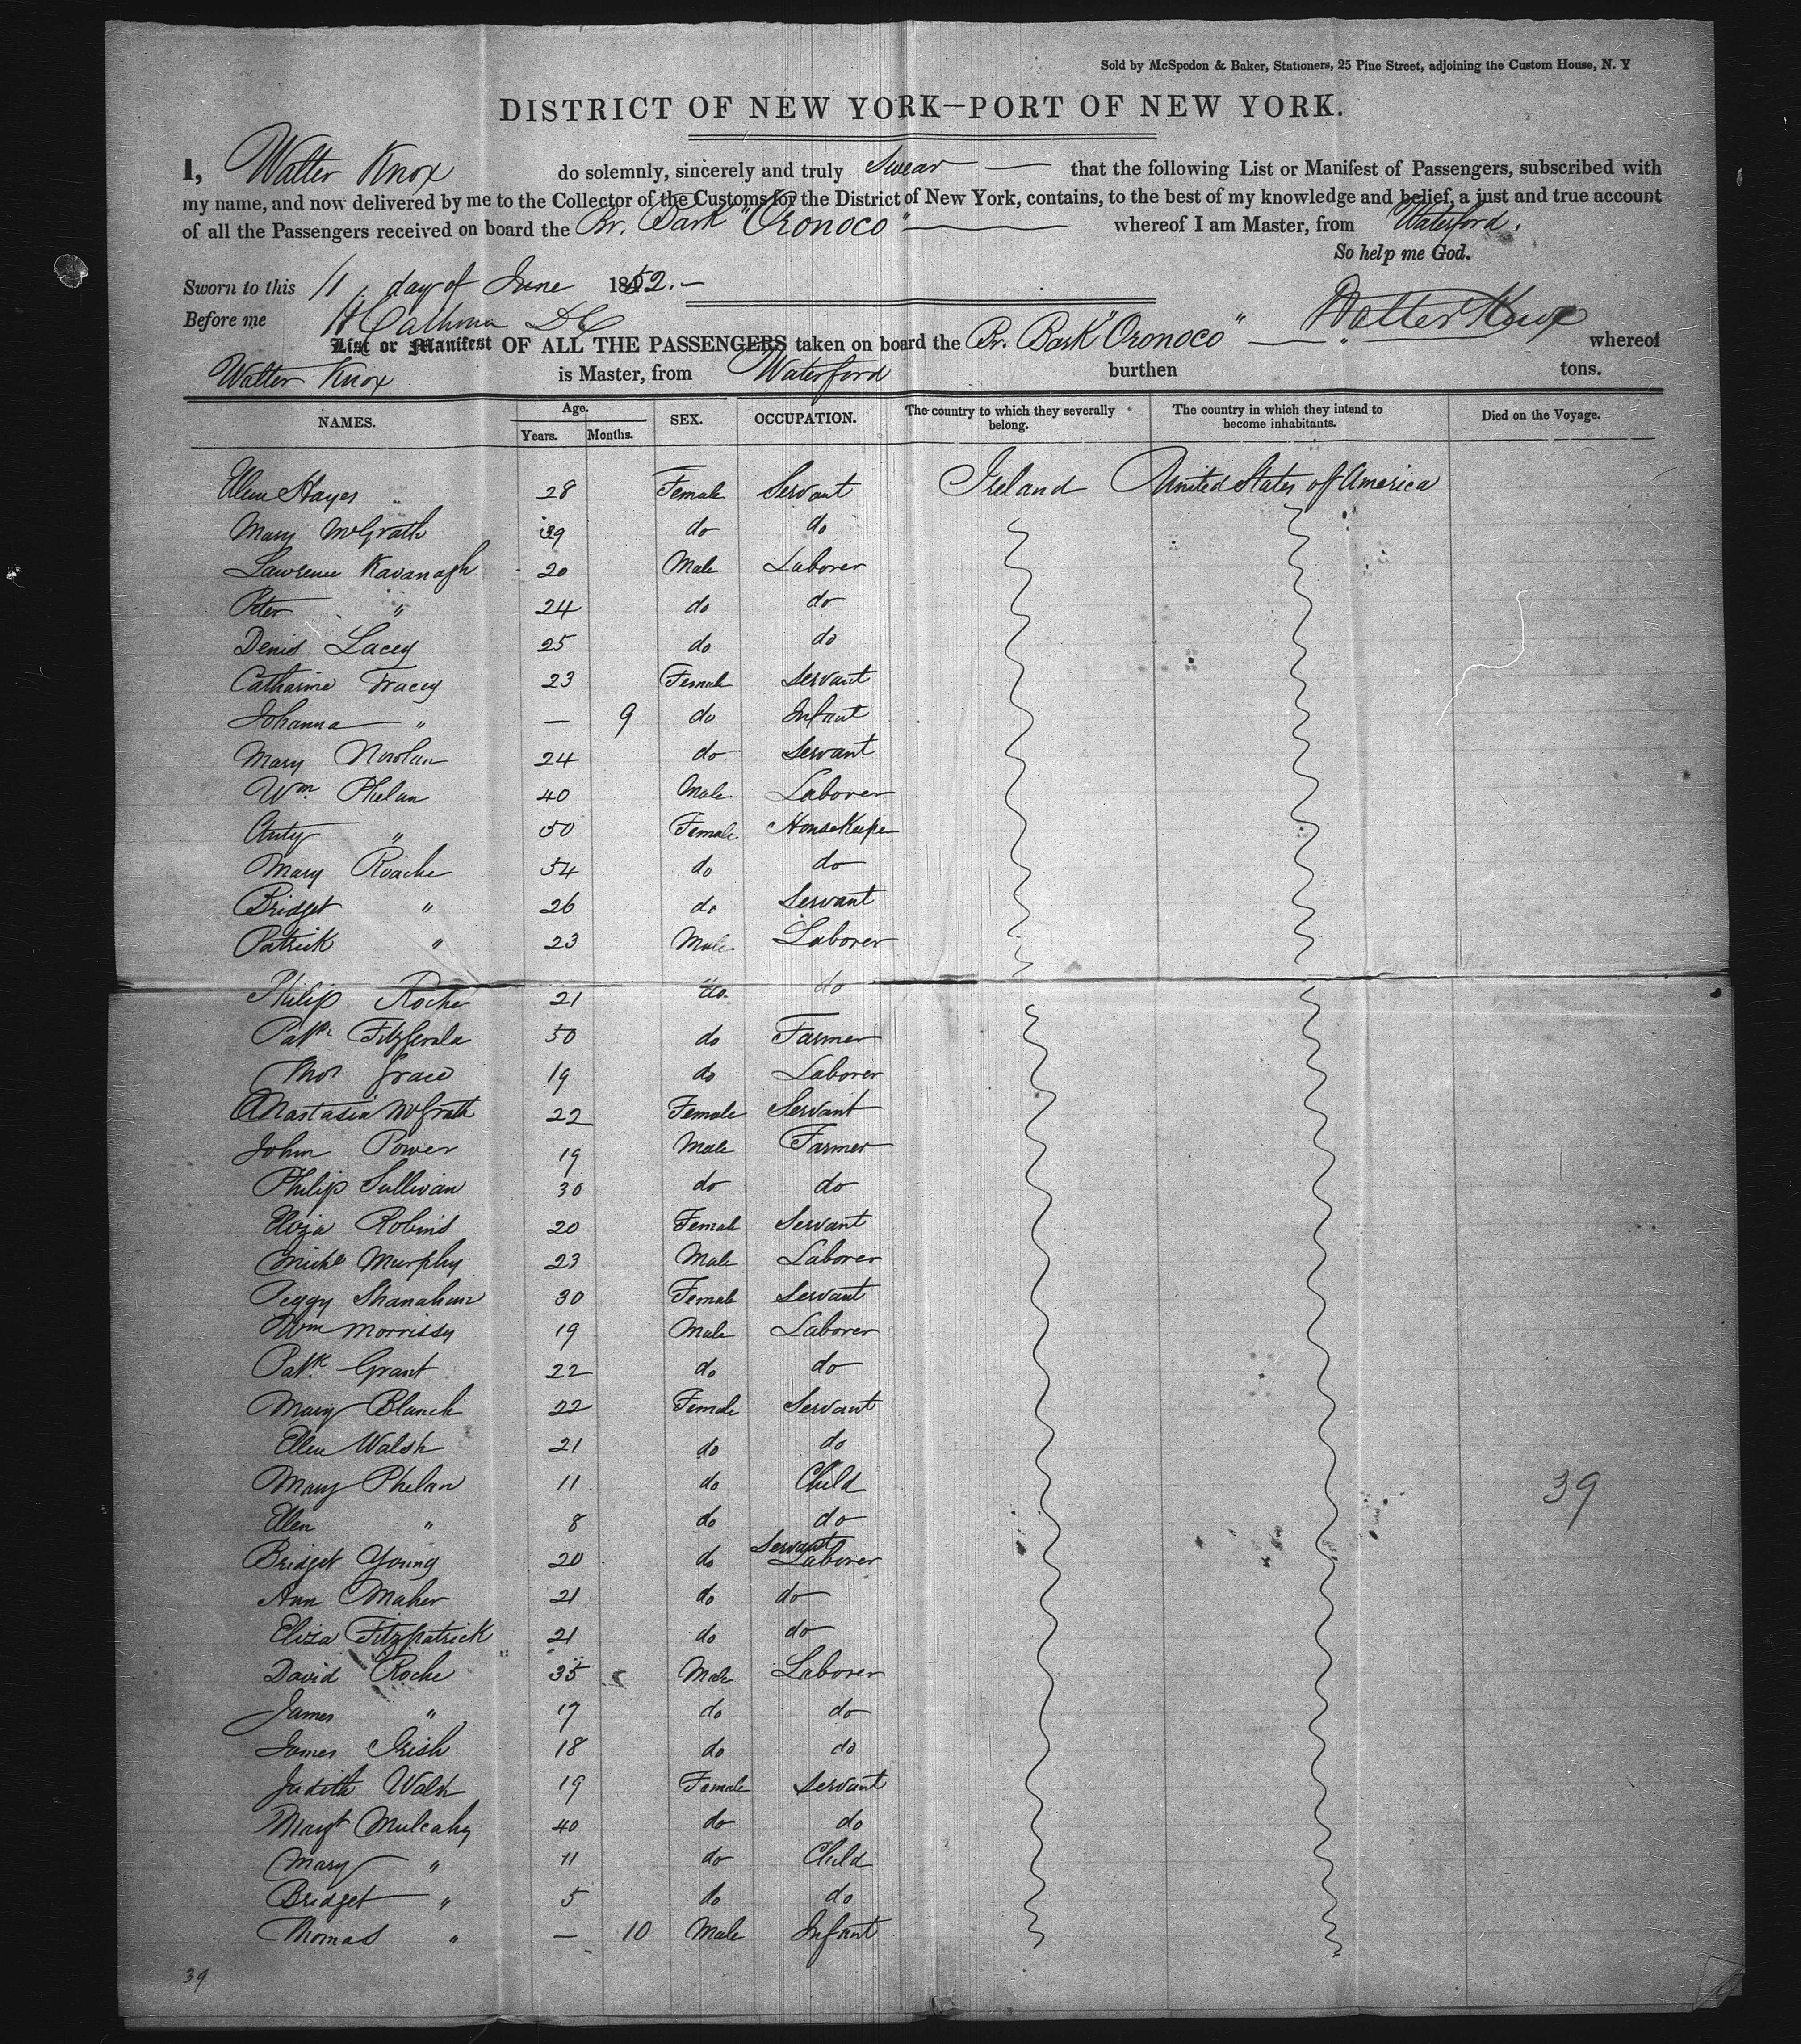 Sold by McSpedon & Baker, Stationers, 25 Pine Street, adjoining the Custom House, N. Y
DISTRICT OF NEW YORK—PORT OF NEW YORK.
I, Walter Knox do solemnly, sincerely and truly Swear — that the following List or Manifest of Passengers, subscribed with
my name, and now delivered by me to the Collector of the Customs for the District of New York, contains, to the best of my knowledge and belief, a just and true account
of all the Passengers received on board the Br. Bark "Oronoco" whereof I am Master, from Waterford.
So help me God.
Sworn to this 11 day of June 1852.—
Before me H Calhoun DC Walter Knox
List or Manifest OF ALL THE PASSENGERS taken on board the Br. Bark "Oronoco" whereof
Walter Knox is Master, from Waterford burthen tons.
NAMES. Age. Years. Months. SEX. OCCUPATION. The country to which they severally belong. The country in which they intend to become inhabitants. Died on the Voyage.
Ellen Hayes 28 Female Servant Ireland United States of America
Mary McGrath 39 do do
Lawrence Kavanagh 20 Male Laborer
Peter " 24 do do
Denis Lacey 25 do do
Catharine Tracey 23 Female Servant
Johanna " — 9 do Infant
Mary Nowlan 24 do Servant
Wm. Phelan 40 Male Laborer
Anty " 50 Female HouseKeeper
Mary Roache 54 do do
Bridget " 26 do Servant
Patrick " 23 Male Laborer
Philip Roche 21 do. do
Patk. Fitzgerald 50 do Farmer
Thos Grace 19 do Laborer
Anastasia McGrath 22 Female Servant
John Power 19 Male Farmer
Philip Sullivan 30 do do
Eliza Robins 20 Female Servant
Michl Murphy 23 Male Laborer
Peggy Shanahan 30 Female Servant
Wm Morrissy 19 Male Laborer
Patk. Grant 22 do do
Mary Blanch 22 Female Servant
Ellen Walsh 21 do do
Mary Phelan 11 do Child
Ellen " 8 do do
Bridget Young 20 do Servant Laborer
Ann Maher 21 do do
Eliza Fitzpatrick 21 do do
David Roche 35 Male Laborer
James " 17 do do
James Irish 18 do do
Judith Walsh 19 Female Servant
Margt Mulcahy 40 do do
Mary " 11 do Child
Bridget " 5 do do
Thomas " — 10 Male Infant
39
39